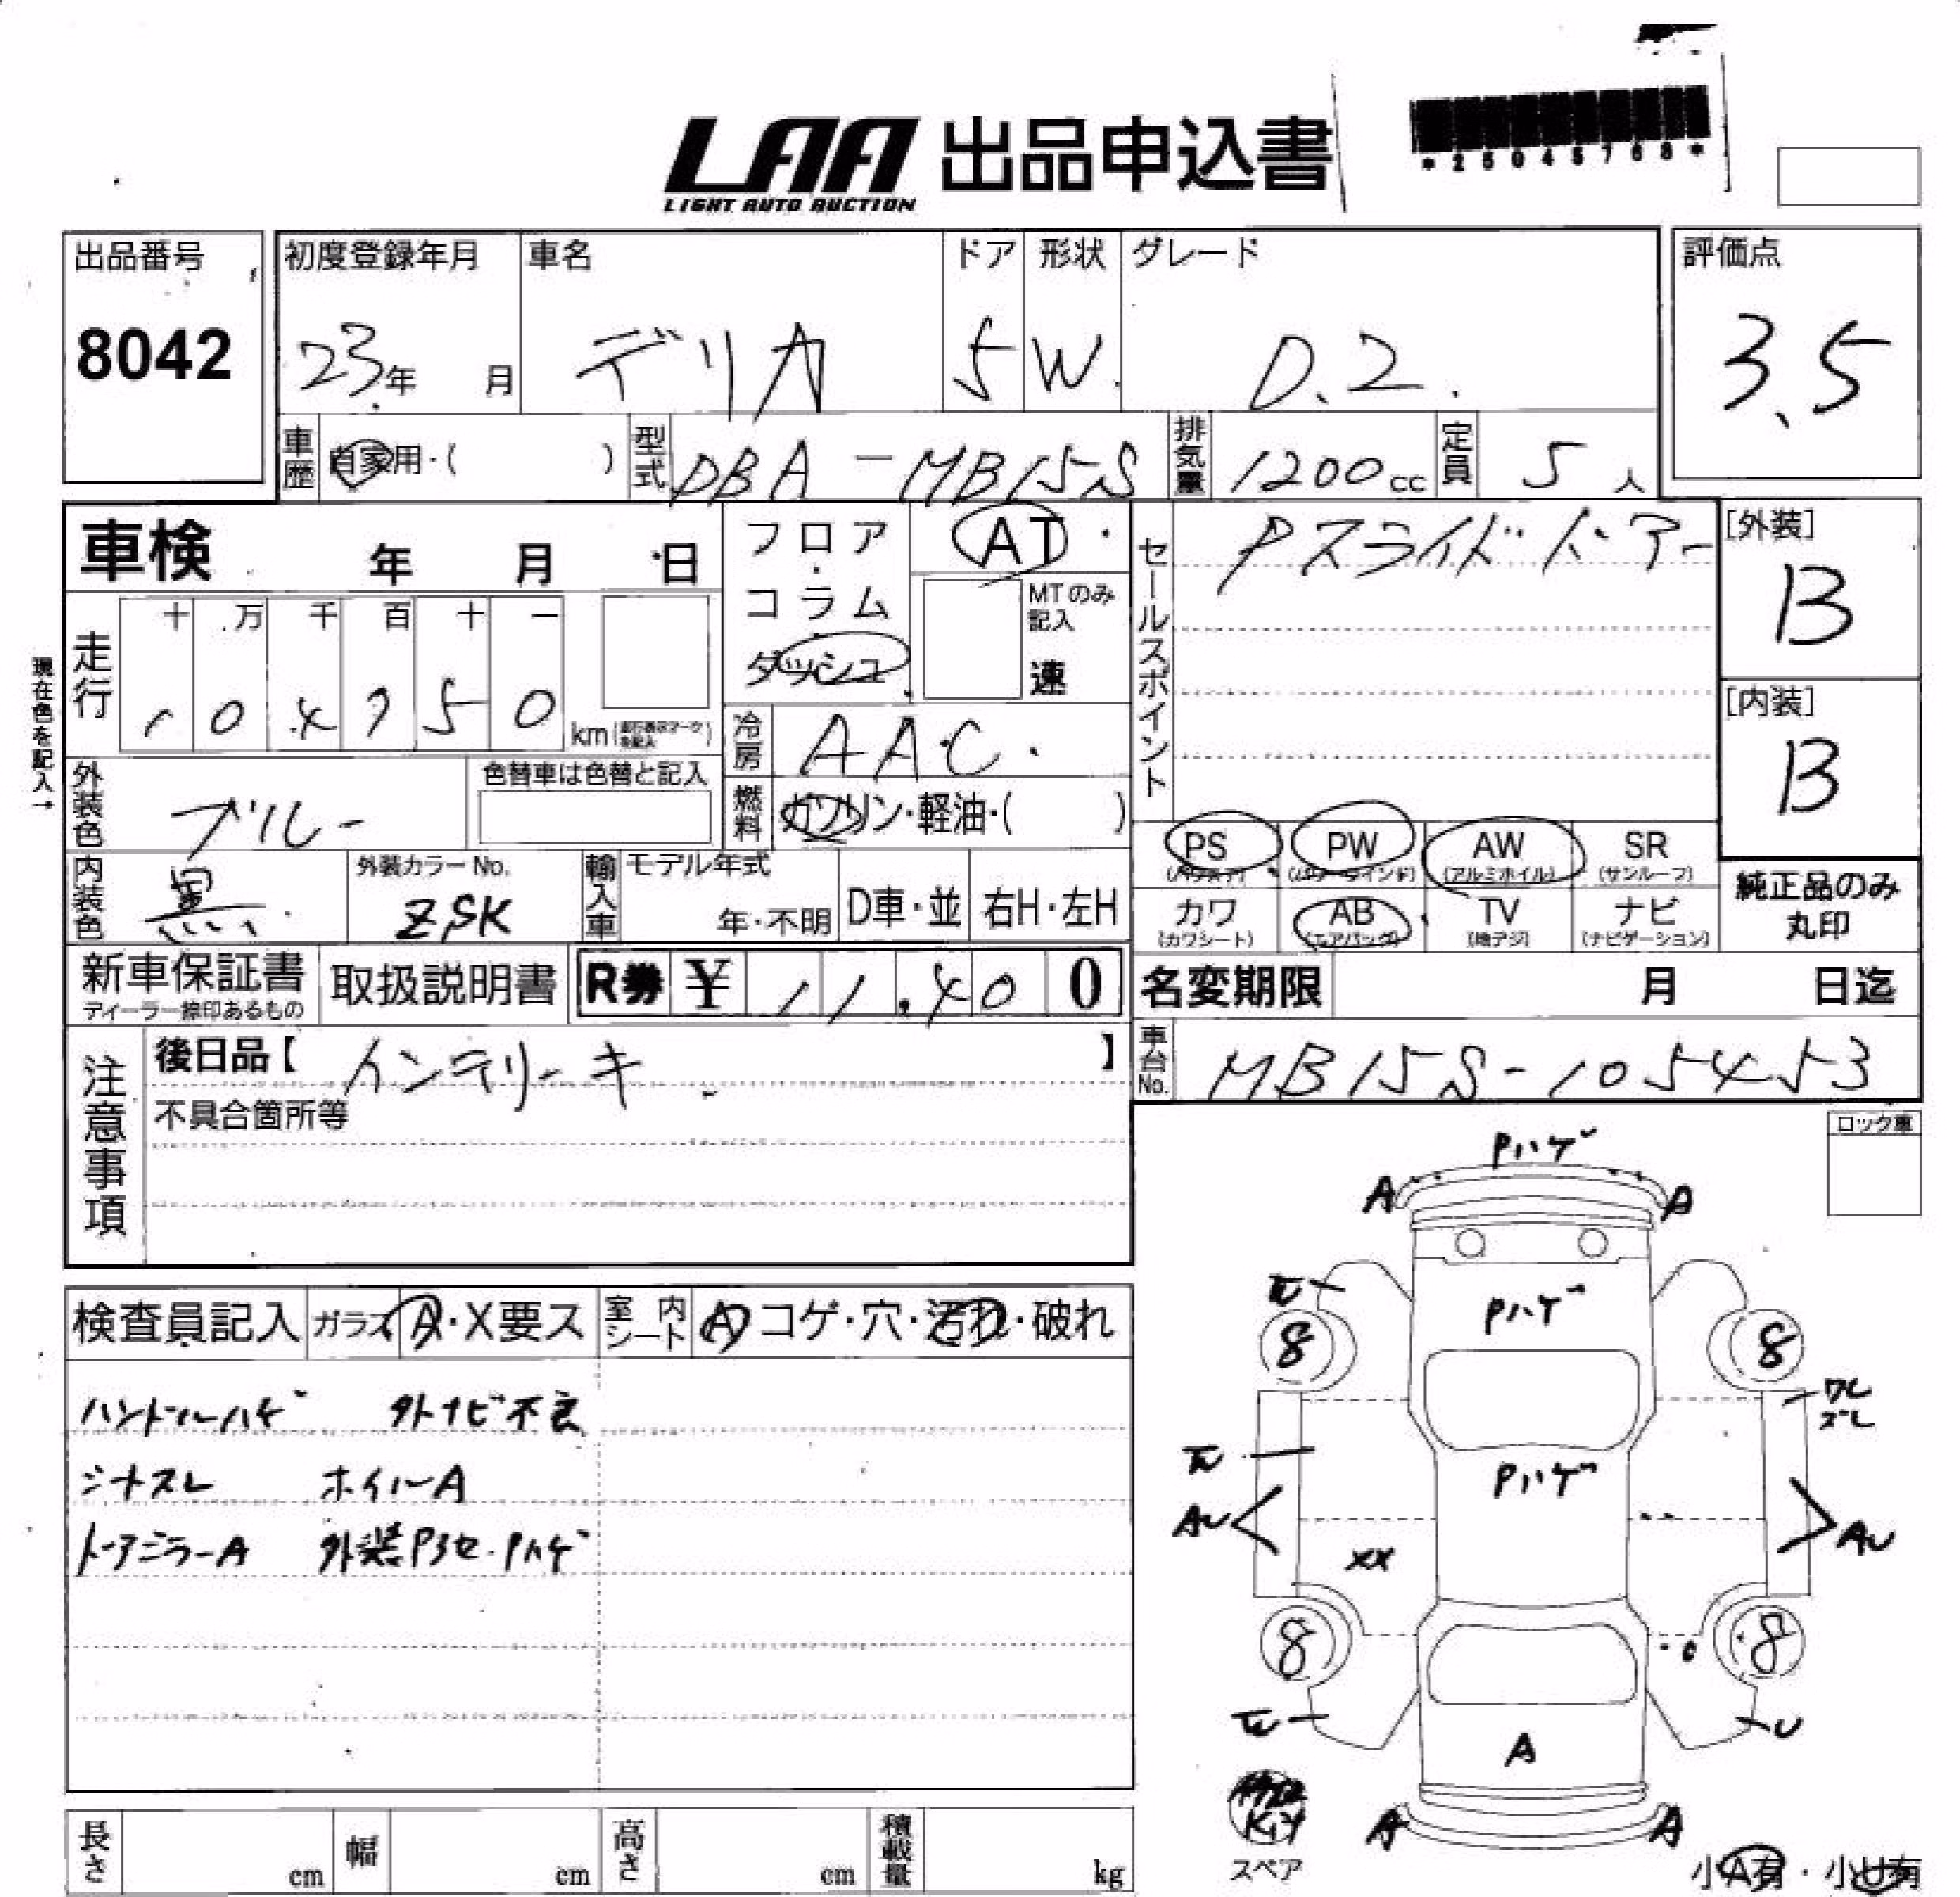 LAA 出品申込書
LIGHT AUTO AUCTION
*25045768*
出品番号
8042
初度登録年月
23年 月
車名
デリカ
ドア
5
形状
W
グレード
D.2.
評価点
3.5
車歴 自家用・( )
型式 DBA-MB15S
排気量 1200cc
定員 5人
車検 年 月 日
フロア・コラム・ダッシュ
AT
MTのみ記入
速
セールスポイント
Pスライドドアー
[外装]
B
[内装]
B
現在色を記入→
走行
十 万 千 百 十 一
104750 km
冷房 AAC
燃料 ガソリン・軽油・( )
外装色 ブルー
色替車は色替と記入
内装色 黒
外装カラーNo.
ZSK
輸入車
モデル年式
年・不明
D車・並
右H・左H
PS (パワステ)
PW (パワーウインド)
AW (アルミホイル)
SR (サンルーフ)
カワ (カワシート)
AB (エアバッグ)
TV (地デジ)
ナビ (ナビゲーション)
純正品のみ
丸印
新車保証書
ディーラー捺印あるもの
取扱説明書
R券 ¥ 11,400
名変期限 月 日迄
車台No. MB15S-105453
注意事項
後日品【インテリーキ】
不具合箇所等
ロック車
検査員記入
ガラス A・X要ス
室内シート
A コゲ・穴・汚れ・破れ
ハンドルハゲ 外ナビ不良
シートスレ ホイルA
ドアミラーA 外装Pヤセ・Pハゲ
Pハゲ
A A
Pハゲ
8 8
ワレ
ズレ
Pハゲ
AU AU
XX
8 8
U
A
A A
Kit
スペア
小A有・小U有
長さ cm
幅 cm
高さ cm
積載量 kg